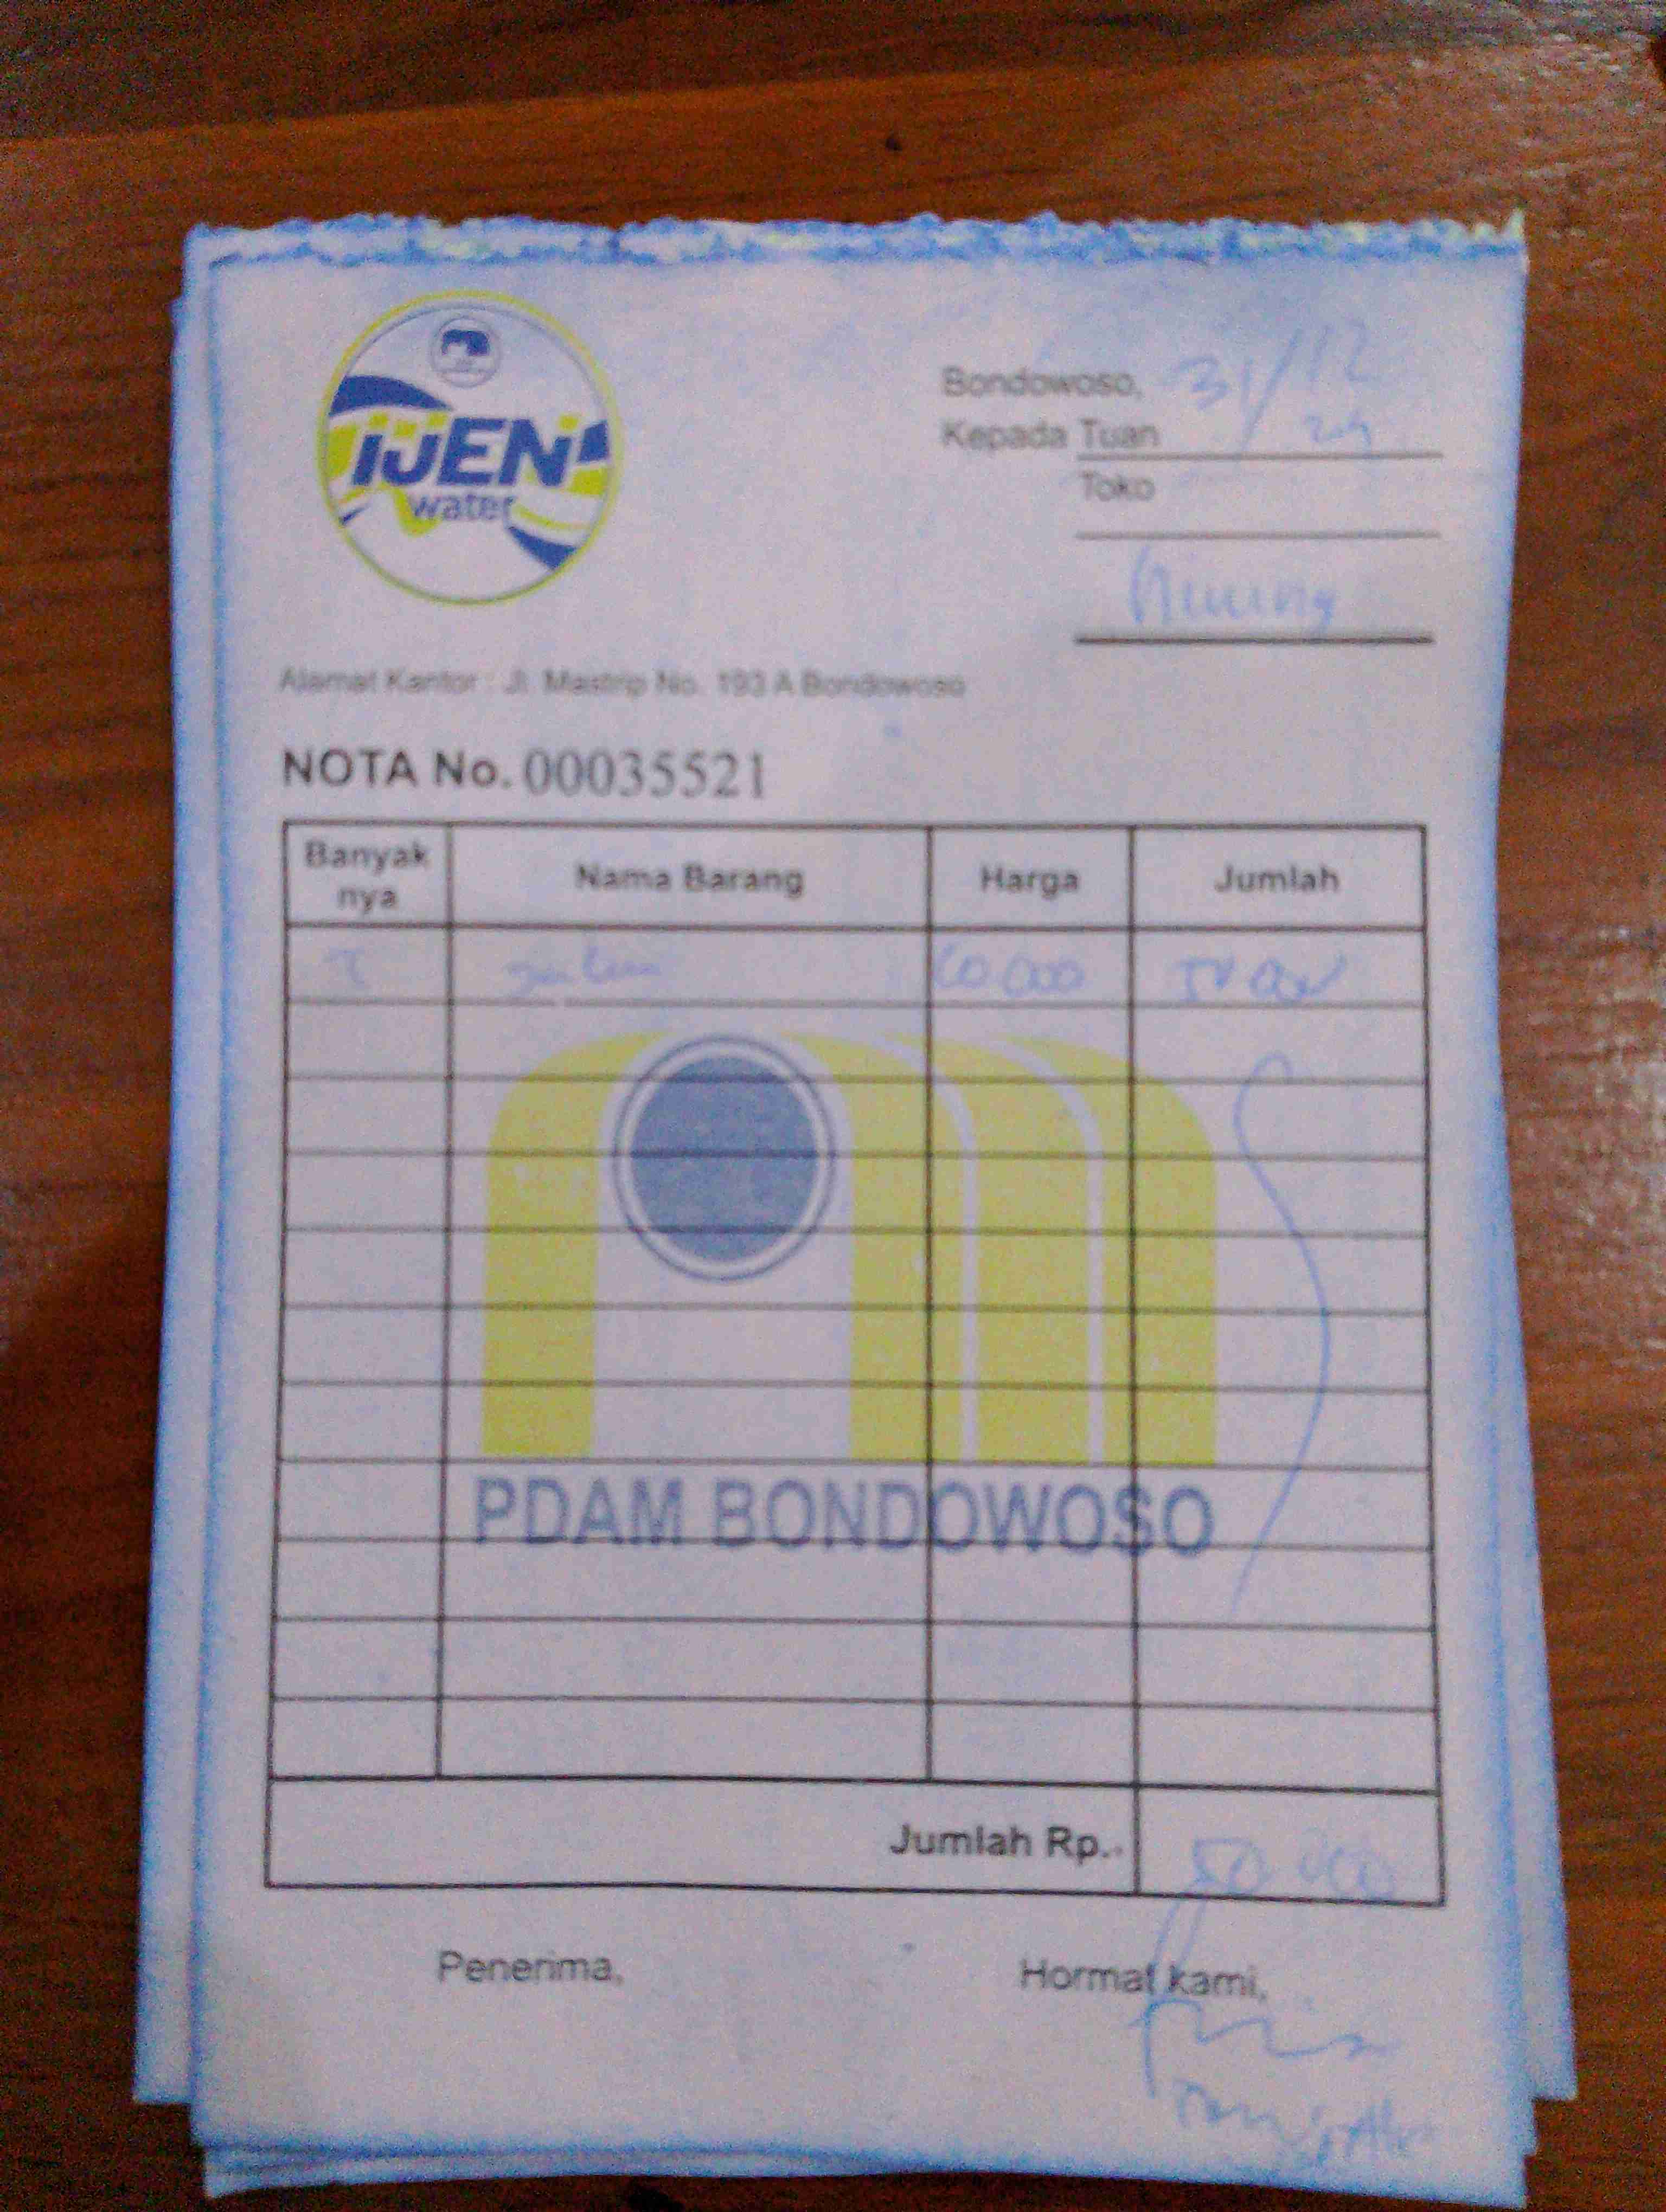 IJEN
water
Bondowoso, 31/12
Kepada Tuan 24
Toko
Alamat Kantor : Jl. Mastrip No. 193 A Bondowoso
NOTA No. 00035521
Banyak nya Nama Barang Harga Jumlah
PDAM BONDOWOSO
Jumlah Rp. 50 000
Penerima, Hormat kami,